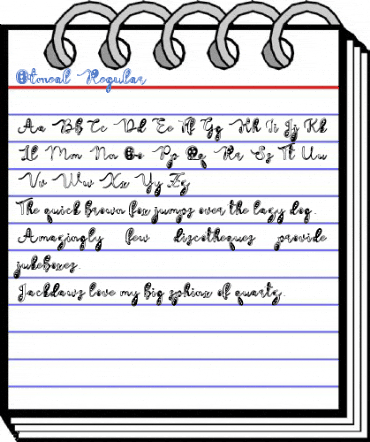 Otonoal Regular
Aa Bb Cc Dd Ee Ff Gg Hh Ii Jj Kk
Ll Mm Nn Oo Pp Qq Rr Ss Tt Uu
Vv Ww Xx Yy Zz
The quick brown fox jumps over the lazy dog.
Amazingly few discotheques provide
jukeboxes.
Jackdaws love my big sphinx of quartz.